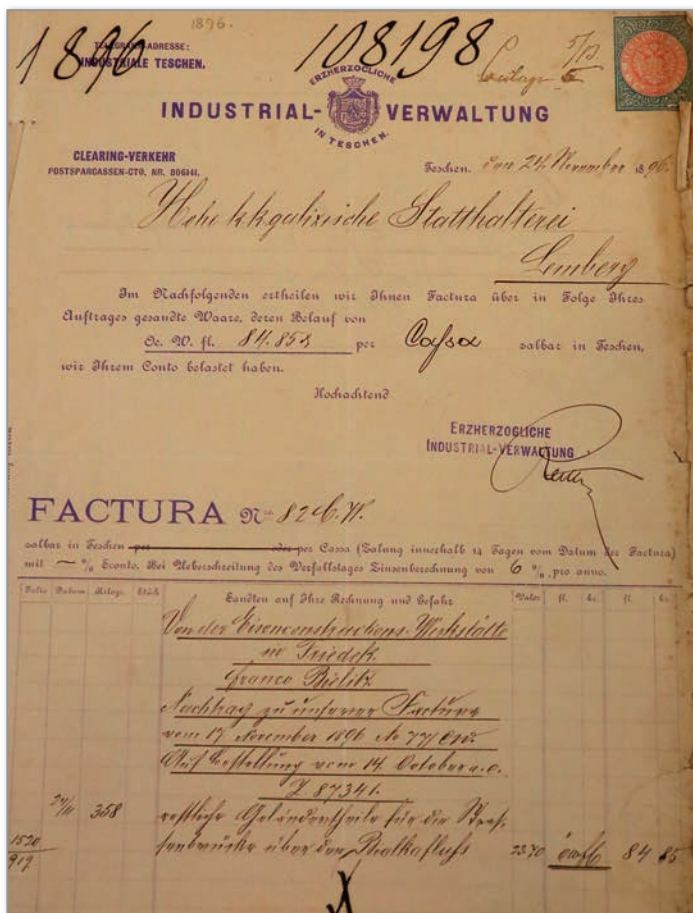 1896.
1896 108198
TELEGRAMM-ADRESSE:
INDUSTRIALE TESCHEN.
5/12
Beilage 5
ERZHERZOGLICHE
INDUSTRIAL-VERWALTUNG
IN TESCHEN.
CLEARING-VERKEHR
POSTSPARCASSEN-CTO. NR. 806141.
Teschen, den 24. November 1896.
Hohe k k galizische Statthalterei
Lemberg
Im Nachfolgenden ertheilen wir Ihnen Factura über in Folge Ihres
Auftrages gesandte Waare, deren Belauf von
Oe. W. fl. 84.85 per Cassa zalbar in Teschen,
wir Ihrem Conto belastet haben.
Hochachtend
ERZHERZOGLICHE
INDUSTRIAL-VERWALTUNG
FACTURA No. 82
zalbar in Teschen per oder per Cassa (Zalung innerhalb 14 Tagen vom Datum der Factura)
mit — % Sconto. Bei Ueberschreitung des Verfallstages Zinsenberechnung von 6 % pro anno.
Folio Datum Kilogr. Stück Sandten auf Ihre Rechnung und Gefahr Valor fl. kr. fl. kr.
Von der Eisenconstructions-Werkstätte
in Friedek.
franco Bielitz
Nachtrag zu unserer Factura
vom 17. November 1896 No 77
Auf Bestellung vom 14. October a. c.
Z 87341.
24/11 358 restliche Geländertheile für die Stras-
senbrücke über den Bialkafluss 23.70 84 85
1520
919